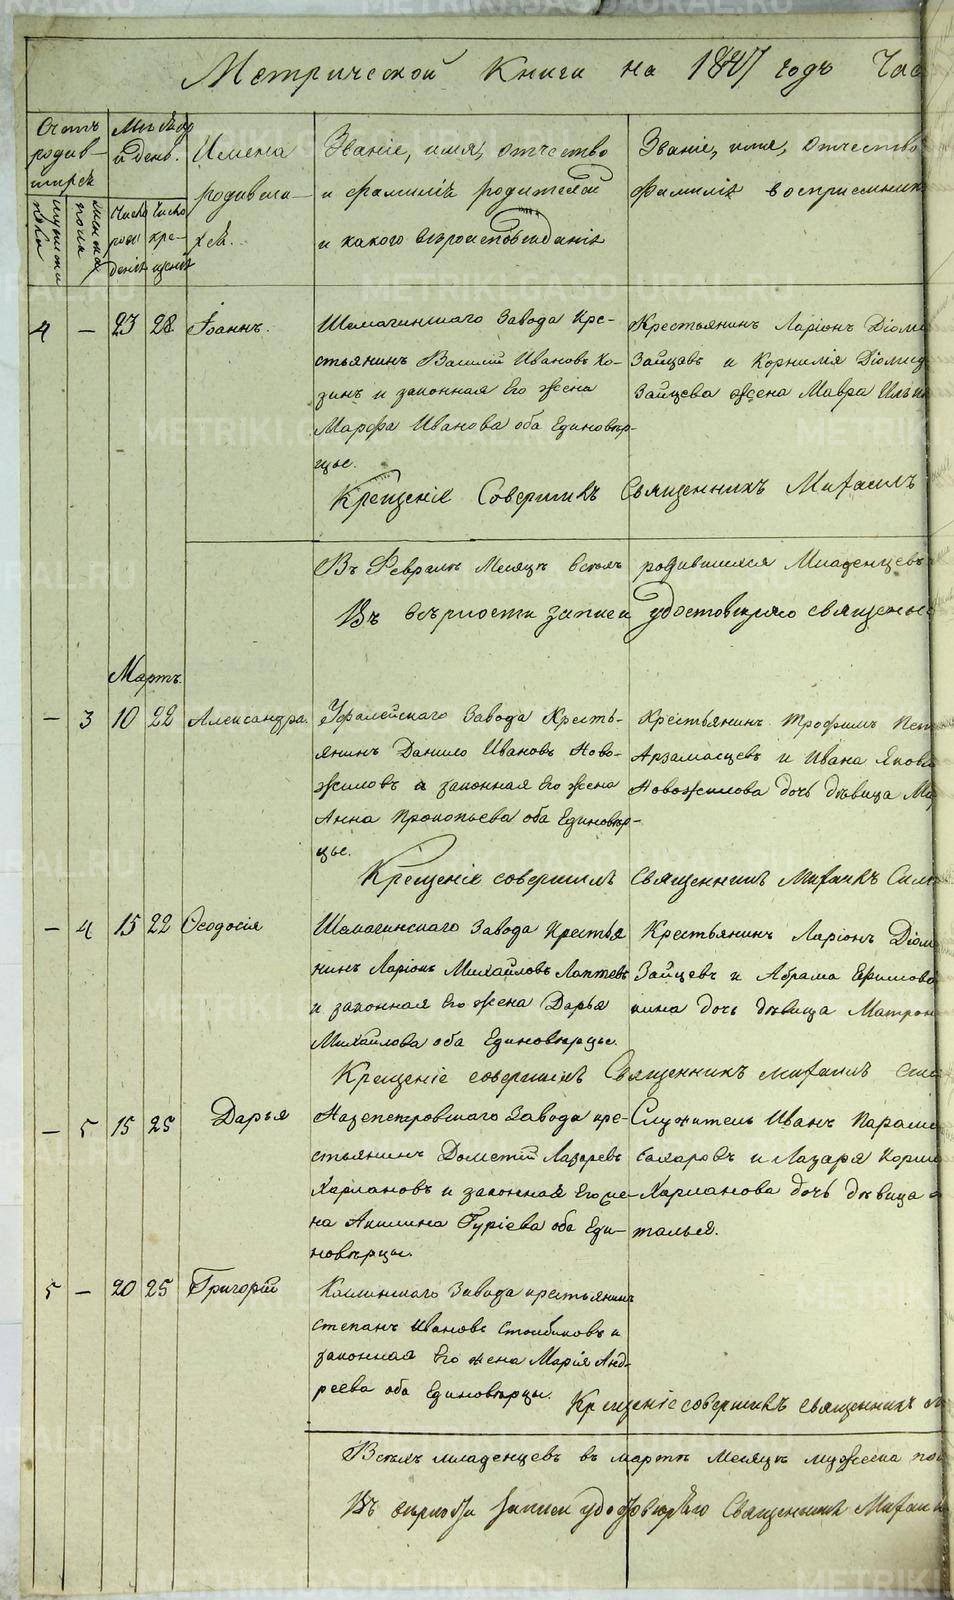 Метрической Книги на 1847 годъ Час
Счетъ родив-шихся
Месяцъ и день.
Имена родивши-хся.
Званіе, имя, отчество и фамилія родителей и какого вероисповеданія
Званіе, имя, отчество фамилія воспріемник
мужеска пола
женска пола
Число рож-денія
Число кре-щенія
4 — 23 28 Іоаннъ.
Шемагинскаго Завода Кре-
стьянинъ Василій Ивановъ Ко-
зинъ и законная Его жена
Марфа Иванова оба Единовѣр-
цы.
Крестьянинъ Ларіонъ Діоми
Зайцевъ и Корнилія Діомид
Зайцева жена Мавра Ильин
Крещеніе Совершилъ Священникъ Михаилъ
Въ Февралѣ Месяцѣ всехъ родившихся Младенцевъ
Въ верности записи удостоверяю священник
Мартъ.
— 3 10 22 Александра.
Уфалейскаго Завода Кресть-
янинъ Данило Ивановъ Ново-
жиловъ и законная Его жена
Анна Прокопьева оба Единовѣр-
цы.
Крестьянинъ Трофимъ Пет
Арзамасцевъ и Ивана Яковл
Новожилова дочь дѣвица Ма
Крещеніе совершилъ Священникъ Михаилъ Сил
— 4 15 22 Ѳеодосія
Шемагинскаго Завода Крестья
нинъ Ларіонъ Михайловъ Лаптевъ
и законная Его жена Дарья
Михайлова оба Единовѣрцы.
Крестьянинъ Ларіонъ Діоми
Зайцевъ и Абрама Ефимова
кина дочь дѣвица Матрон
Крещеніе совершилъ Священникъ Михаилъ Сил
— 5 15 25 Дарья
Назепетровскаго Завода кре-
стьянинъ Дометій Лазаревъ
Харлановъ и законная Его же-
на Акилина Гуріева оба Еди-
новѣрцы.
Служитель Иванъ Парами
Захаровъ и Лазаря Корни
Харланова дочь дѣвица
талья.
5 — 20 25 Григорій
Каслинскаго Завода крестьянинъ
Степанъ Ивановъ Столбиковъ и
законная Его жена Марія Анд-
реева оба Единовѣрцы.
Крещеніе совершилъ священникъ М
Всехъ младенцевъ въ мартѣ Месяцѣ мужеска пол
Въ верности записи удостоверяю Священникъ Михаилъ